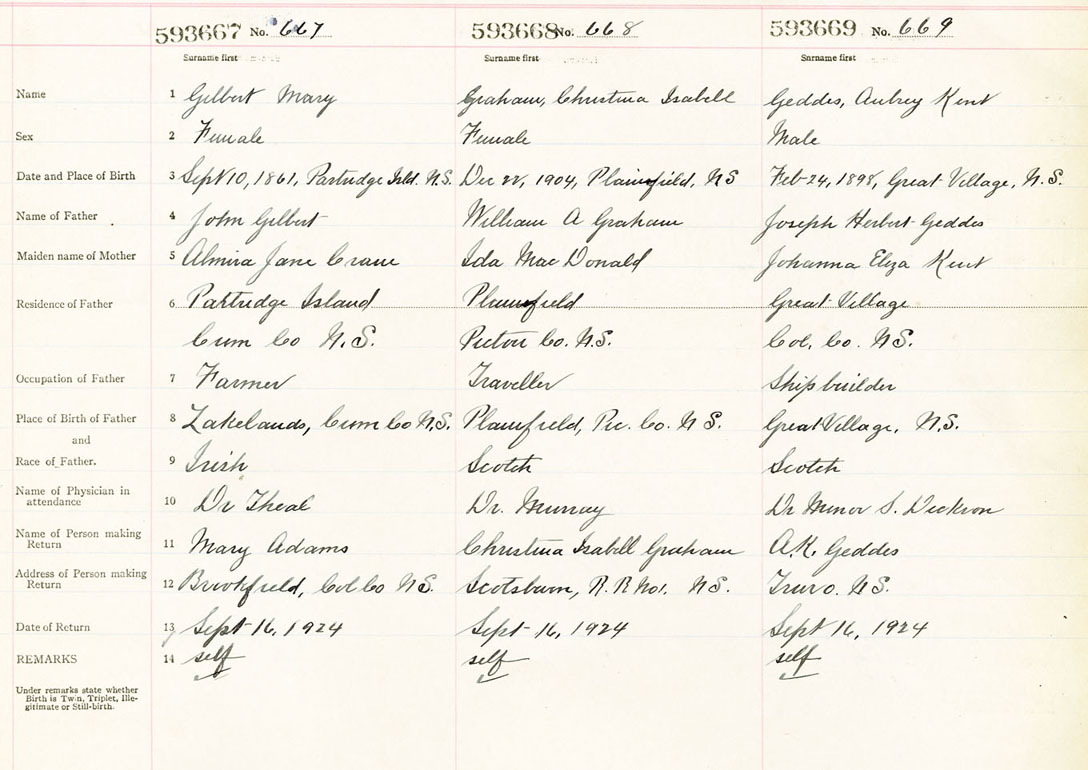 593667 No. 667 593668 No. 668 593669 No. 669
Surname first Surname first Surname first
Name 1 Gilbert Mary Graham, Christina Isabell Geddes, Aubrey Kent
Sex 2 Female Female Male
Date and Place of Birth 3 Sept 10, 1861, Partridge Isld. N.S. Dec 22, 1904, Plainfield, NS Feb 24, 1898, Great Village, N.S.
Name of Father 4 John Gilbert William A Graham Joseph Herbert Geddes
Maiden name of Mother 5 Almira Jane Crane Ida MacDonald Johanna Eliza Kent
Residence of Father 6 Partridge Island Plainfield Great Village
Cum Co N.S. Pictou Co. N.S. Col. Co. N.S.
Occupation of Father 7 Farmer Traveller Shipbuilder
Place of Birth of Father 8 Lakelands, Cum Co N.S. Plainfield, Pic. Co. N S. Great Village, N.S.
and
Race of Father. 9 Irish Scotch Scotch
Name of Physician in
attendance 10 Dr Theal Dr. Murray Dr Minor S. Dickson
Name of Person making
Return 11 Mary Adams Christina Isabell Graham A.K. Geddes
Address of Person making
Return 12 Brookfield, Col Co N S. Scotsburn, R. R No1. N S. Truro. N S.
Date of Return 13 Sept 16, 1924 Sept 16, 1924 Sept 16, 1924
REMARKS 14 self self self
Under remarks state whether
Birth is Twin, Triplet, Ille-
gitimate or Still-birth.